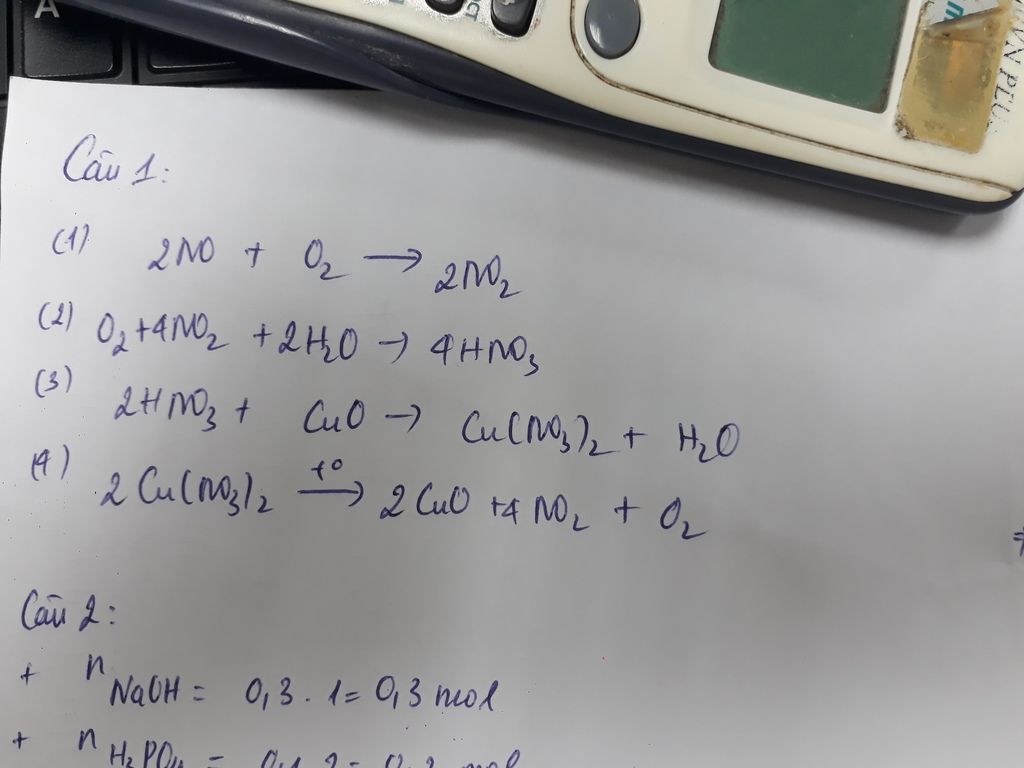 A
Câu 1:
(1) 2NO + O₂ → 2NO₂
(2) O₂+4NO₂ +2H₂O → 4HNO₃
(3) 2HNO₃ + CuO → Cu(NO₃)₂ + H₂O
(4) 2Cu(NO₃)₂ t° → 2CuO +4NO₂ + O₂
Câu 2:
+ n NaOH = 0,3 . 1 = 0,3 mol
+ n